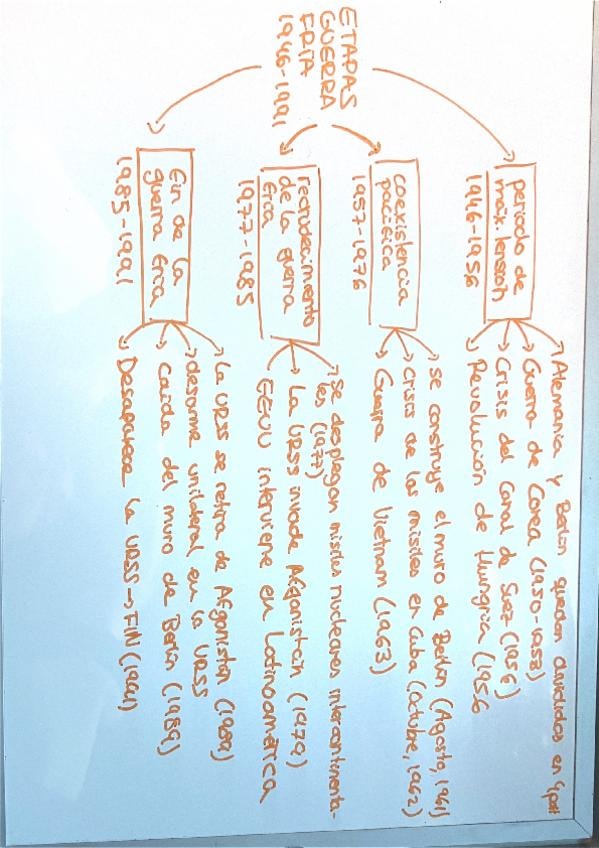 ETAPAS
GUERRA
FRIA
1946-1991
periodo de
máx. tensión
1946-1956
Alemania y Berlin quedan divididos en 4
Guerra de Corea (1950-1953)
Crisis del Canal de Suez (1956)
Revolución de Hungria (1956
coexistencia
pacifica
1957-1976
se construye el muro de Berlin (Agosto, 1961)
crisis de los misiles en Cuba (octubre, 1962)
Guerra de Vietnam (1963)
de la guerra
fria
1977-1985
se desplegan misiles nucleares intercontinenta-
les (1977)
La URSS invade Afganistán (1979)
EEUU interviene en Latinoamérica
Fin de la
guerra fria
1985-1991
La URSS se retira de Afganistan (1989)
desarme unilateral en la URSS
caida del muro de Berlin (1989)
Desaparece la URSS → FIN (1991)